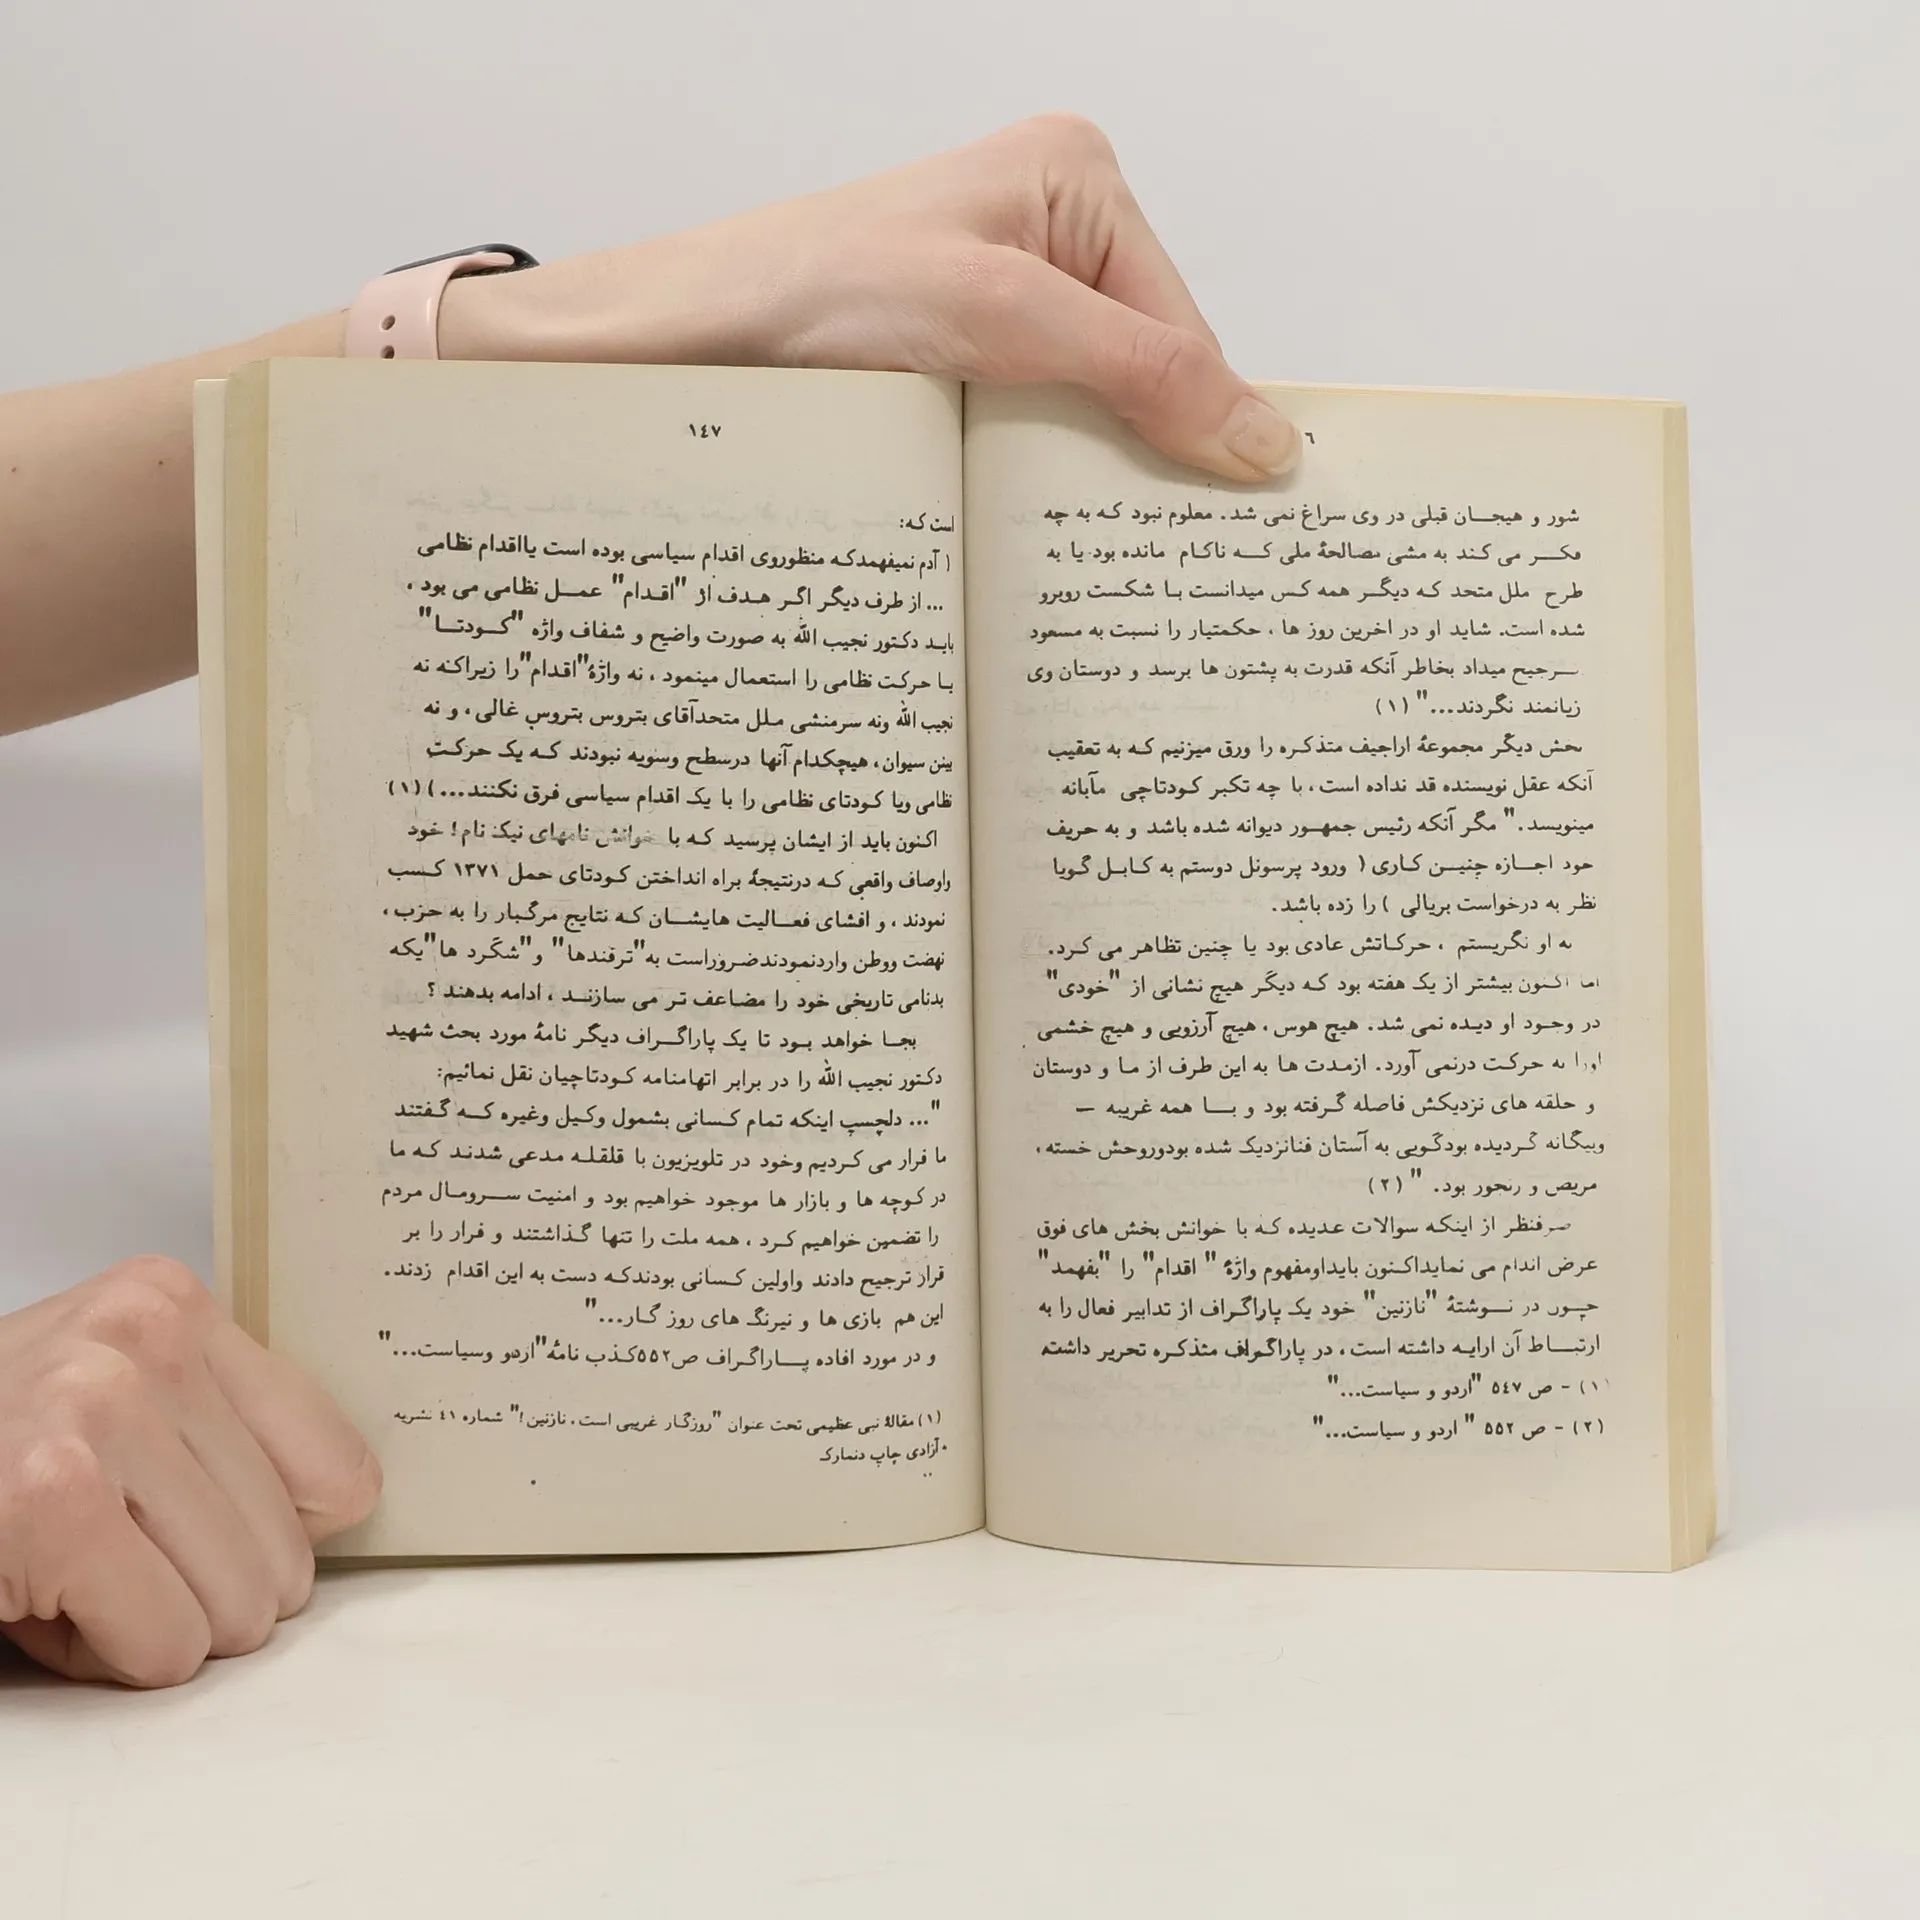 ٦
شور و هیجـــان قبلی در وی سراغ نمی شد. معلوم نبود که به چه
فکــــر می کند به مشی مصالحهٔ ملی کــــه ناکام مانده بود یا به
طرح ملل متحد که دیگـــر همه کس میدانست بـا شکست روبرو
شده است. شاید او در اخرین روز ها ، حکمتیار را نسبت به مسعود
ـــرجیح میداد بخاطر آنکه قدرت به پشتون ها برسد و دوستان وی
زیانمند نگردند..." (۱)
بخش دیگر مجموعهٔ اراجیف متذکره را ورق میزنیم که به تعقیب
آنکه عقل نویسنده قد نداده است ، با چه تکبر کودتاچی مآبانه
مینویسد. " مگر آنکه رئیس جمهـــور دیوانه شده باشد و به حریف
خود اجـــازه چنیـــن کـاری ( ورود پرسونل دوستم به کـابـل گـویا
نظر به درخواست بریالی ) را زده باشد.
به او نگریستم ، حرکـاتش عادی بود یا چنین تظاهر می کرد.
اما اکنون بیشتر از یک هفته بود کـه دیگر هیچ نشانی از "خودی"
در وجـود او دیـده نمی شد. هیچ هوس ، هیچ آرزویی و هیچ خشمی
اورا به حرکت درنمی آورد. ازمـدت ها به این طرف از مـا و دوستان
و حلقه های نزدیکش فاصله گـرفته بود و بـــا همه غریبه –
وبیگانه گردیده بودگویی به آستان فنانزدیک شده بودوروحش خسته ،
مریض و رنجور بود. " (۲)
صرفنظر از اینکه سوالات عدیده کـه با خوانش بخش های فوق
عرض اندام می نمایداکـنون بایداومفهوم واژهٔ " اقدام" را "بفهمد"
چـون در نـــوشتهٔ "نازنین" خود یک پاراگـراف از تدابیر فعال را به
ارتبـــاط آن ارایـه داشته است ، در پاراگـراف متذکره تحریر داشته
(۱) – ص ٥٤٧ "اردو و سیاست..."
(۲) – ص ٥٥٢ " اردو و سیاست..."
١٤٧
است کـه:
( آدم نمیفهمدکـه منظوروی اقدام سیاسی بوده است یااقدام نظامی
... از طرف دیگر اگـر هـدف از "اقـدام" عمـــل نظامی می بود ،
بایـد دکـتور نجیب الله به صورت واضیح و شفاف واژه "کـــودتـــا"
بـا حرکت نظامی را استعمال مینمود ، نه واژهٔ"اقدام"را زیراکـه نه
نجیب الله ونه سرمنشی مـلل متحدآقای بتروس بتروس غالی ، و نه
بینن سیوان، هیچکدام آنها درسطح وسویه نبودند کـه یک حرکـت
نظامی ویا کـودتای نظامی را با یک اقدام سیاسی فرق نکنند...) (۱)
اکنون باید از ایشان پرسید کـه با خوانش نامهای نیک نام! خود
واوصاف واقعی کـه درنتیجهٔ براه انداختن کـودتای حمل ١٣٧١ کـسب
نمودند ، و افشای فعـالیت هایشـــان کـه نتایج مرگبار را به حزب ،
نهضت ووطن واردنمودندضـروراست به"ترفندها" و"شگرد ها"یکه
بدنامی تاریخی خود را مضـاعف تـر می سازنـــد ، ادامه بدهند ؟
بجـــا خواهد بـود تا یک پاراگـــراف دیگر نامهٔ مورد بحث شهید
دکـتور نجیب الله را در برابر اتهامنامه کـودتاچیان نقل نمائیم:
"... دلچسپ اینکه تمام کـسانی بشمول وکیل وغیره کـــه گـفتند
ما فرار می کـردیم وخود در تلویزیون با قلقلـه مـدعی شدنـد کـه ما
در کـوچه ها و بازار ها موجود خواهیم بود و امنیت ســـرومـال مردم
را تضمین خواهیم کـرد ، همه ملت را تنها گـذاشتند و فرار را بر
قرار ترجیح دادند واولین کـسانی بودندکـه دست به این اقدام زدند.
این هم بازی ها و نیرنگ های روز گـار..."
و در مورد افاده پـــاراگـراف ص٥٥٢کـذب نامهٔ"اردو وسیاست..."
(۱) مقالهٔ نبی عظیمی تحت عنوان "روزگـار غریبی است ، نازنین!" شماره ٤١ نشریه
آزادی چاپ دنمارک